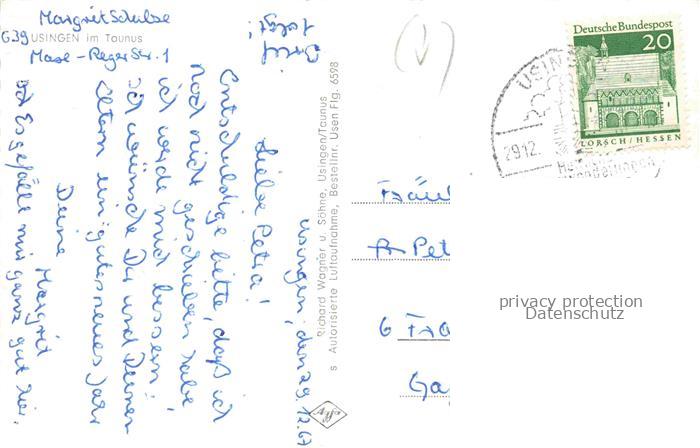 Margrit Schulze
639 USINGEN im Taunus
Max-Reger Str. 1
Brief folgt!
Usingen, den 29.12.67
Liebe Petra!
Entschuldige bitte, daß ich
noch nicht geschrieben habe
ich werde mich bessern!
ich wünsche Dir und Deinen
Eltern ein gutes neues Jahr
Deine Margrit
Es gefällt mir ganz gut hier.
Richard Wagner u. Söhne, Usingen/Taunus
s Autorisierte Luftaufnahme, Bestellnr. Usen Flg. 6598
Deutsche Bundespost
20
LORSCH/HESSEN
USING
29.12.
Fräul
Pet
6 Fra
Ga
privacy protection
Datenschutz